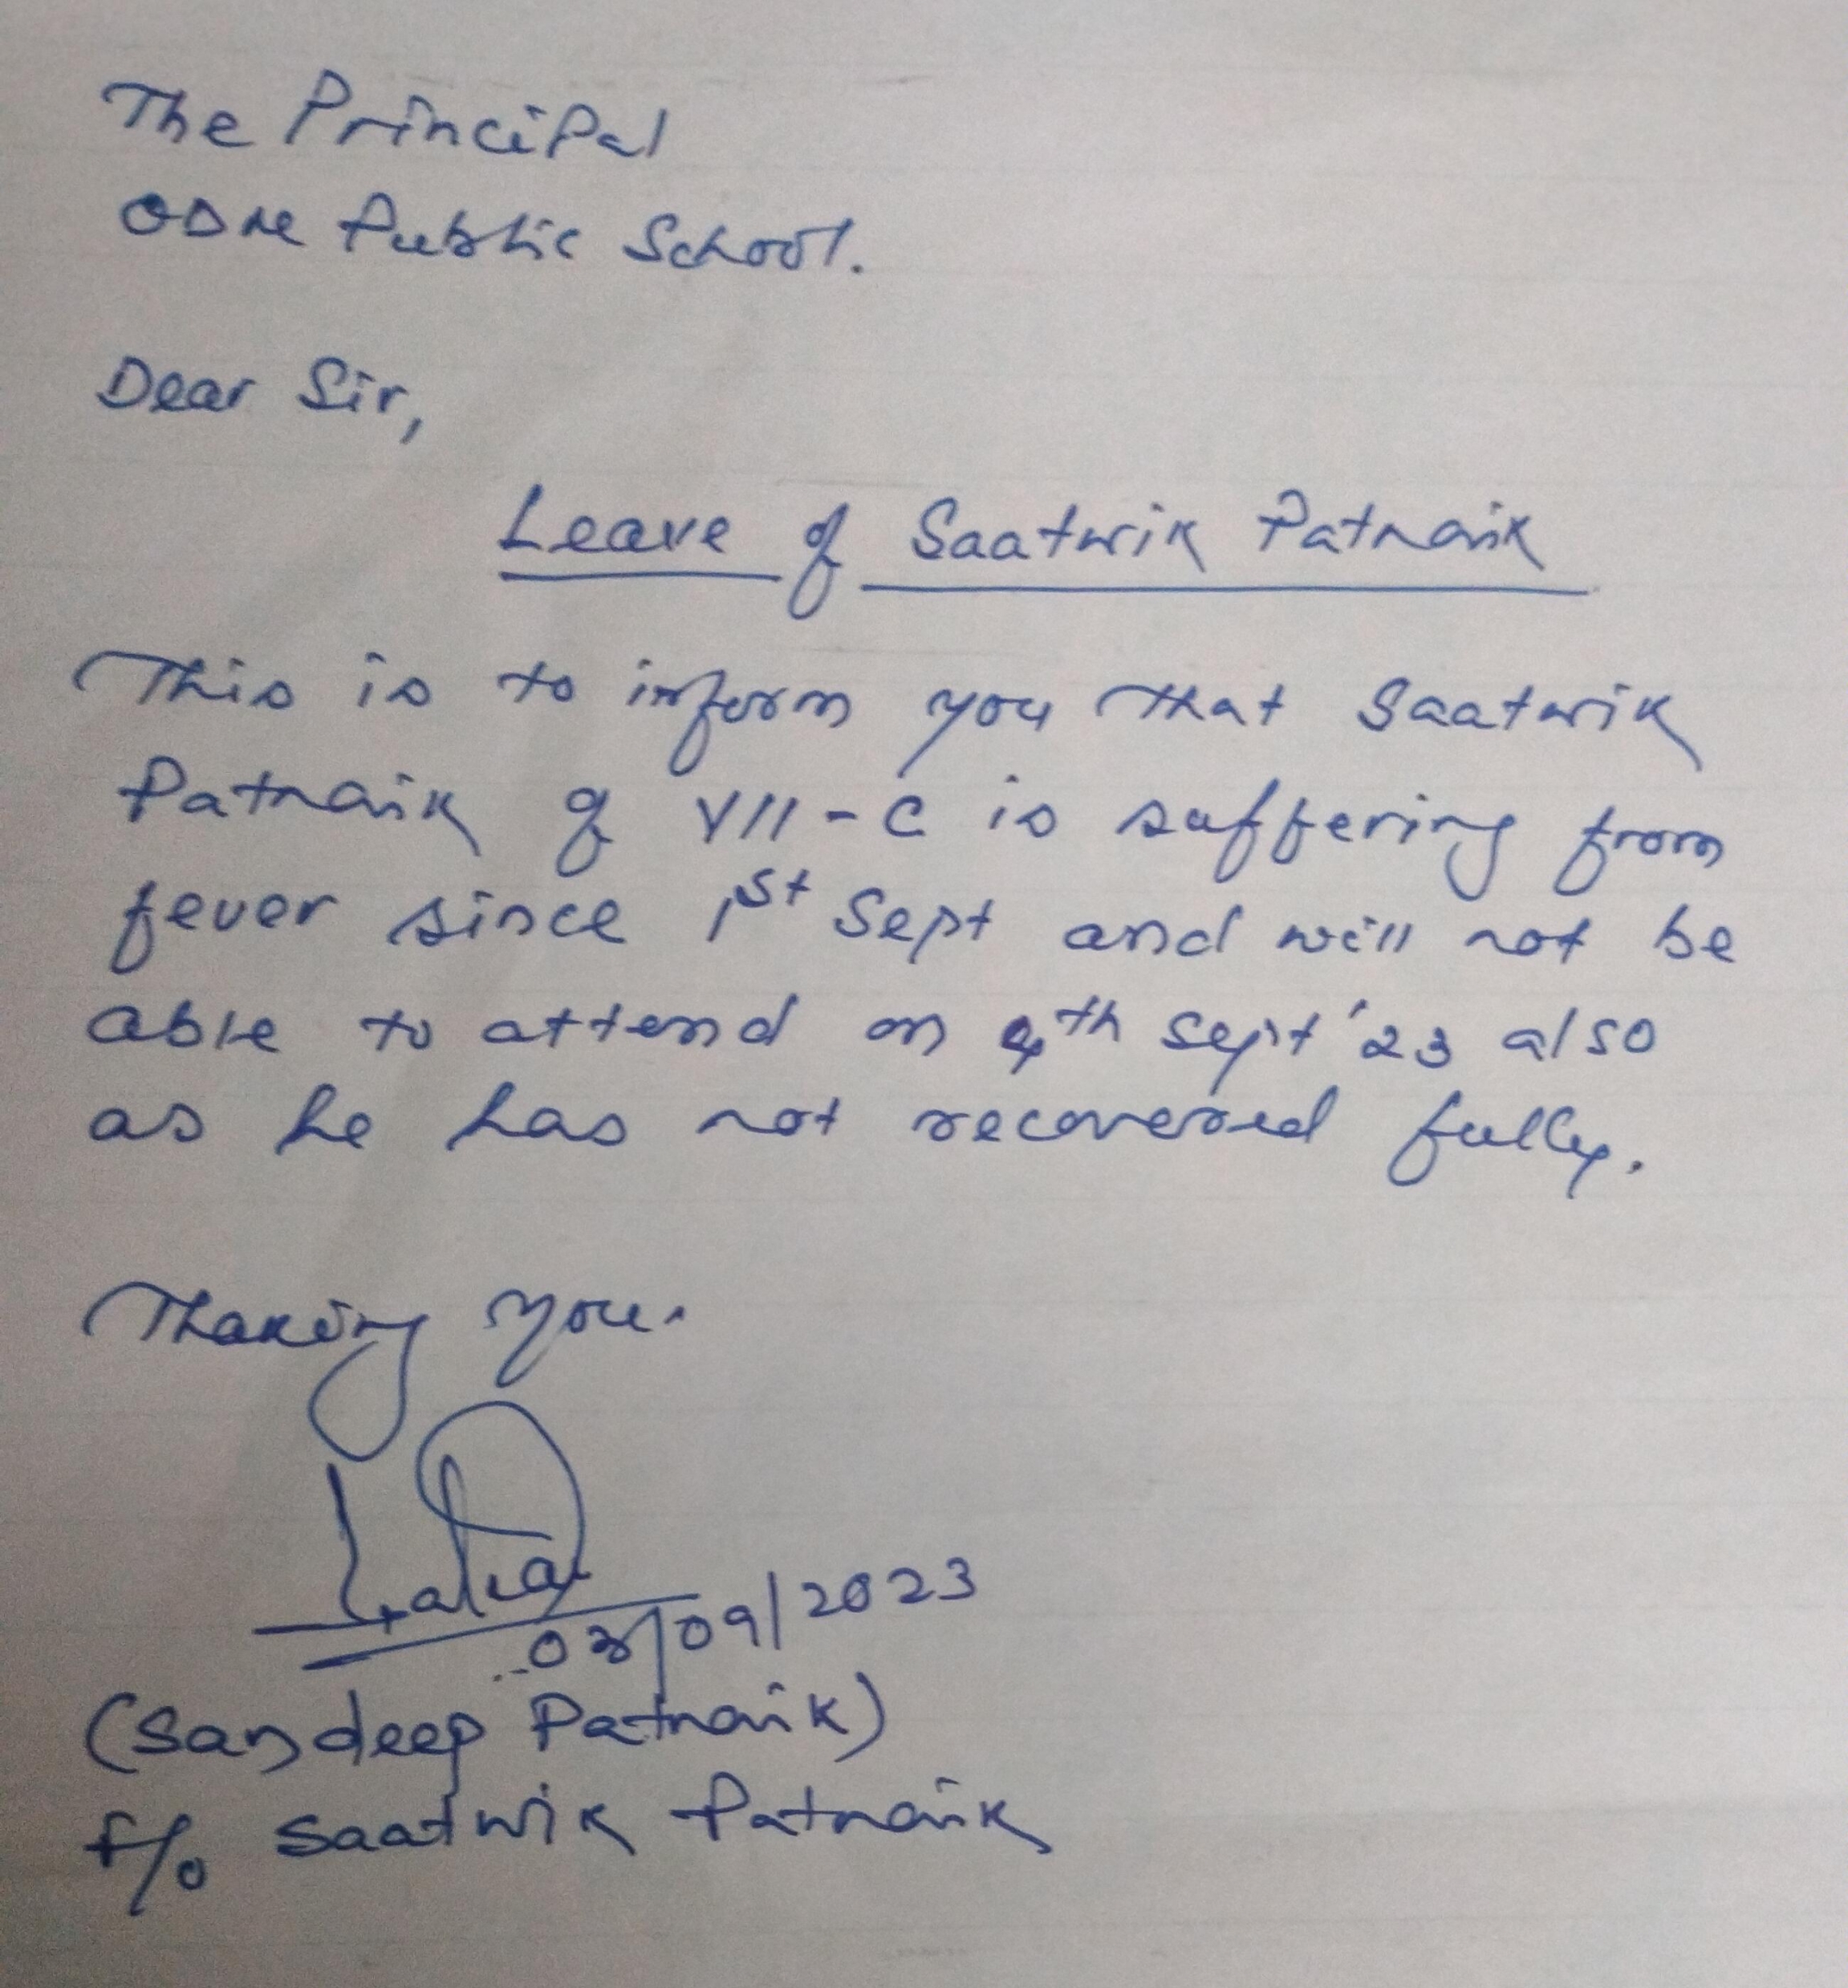 The Principal
ODM Public School.
Dear Sir,
Leave of Saatwik Patnaik
This is to inform you that Saatwik
Patnaik of VII-C is suffering from
fever since 1st Sept and will not be
able to attend on 4th Sept '23 also
as he has not recovered fully.
Thanking you.
03/09/2023
(Sandeep Patnaik)
F/o Saatwik Patnaik